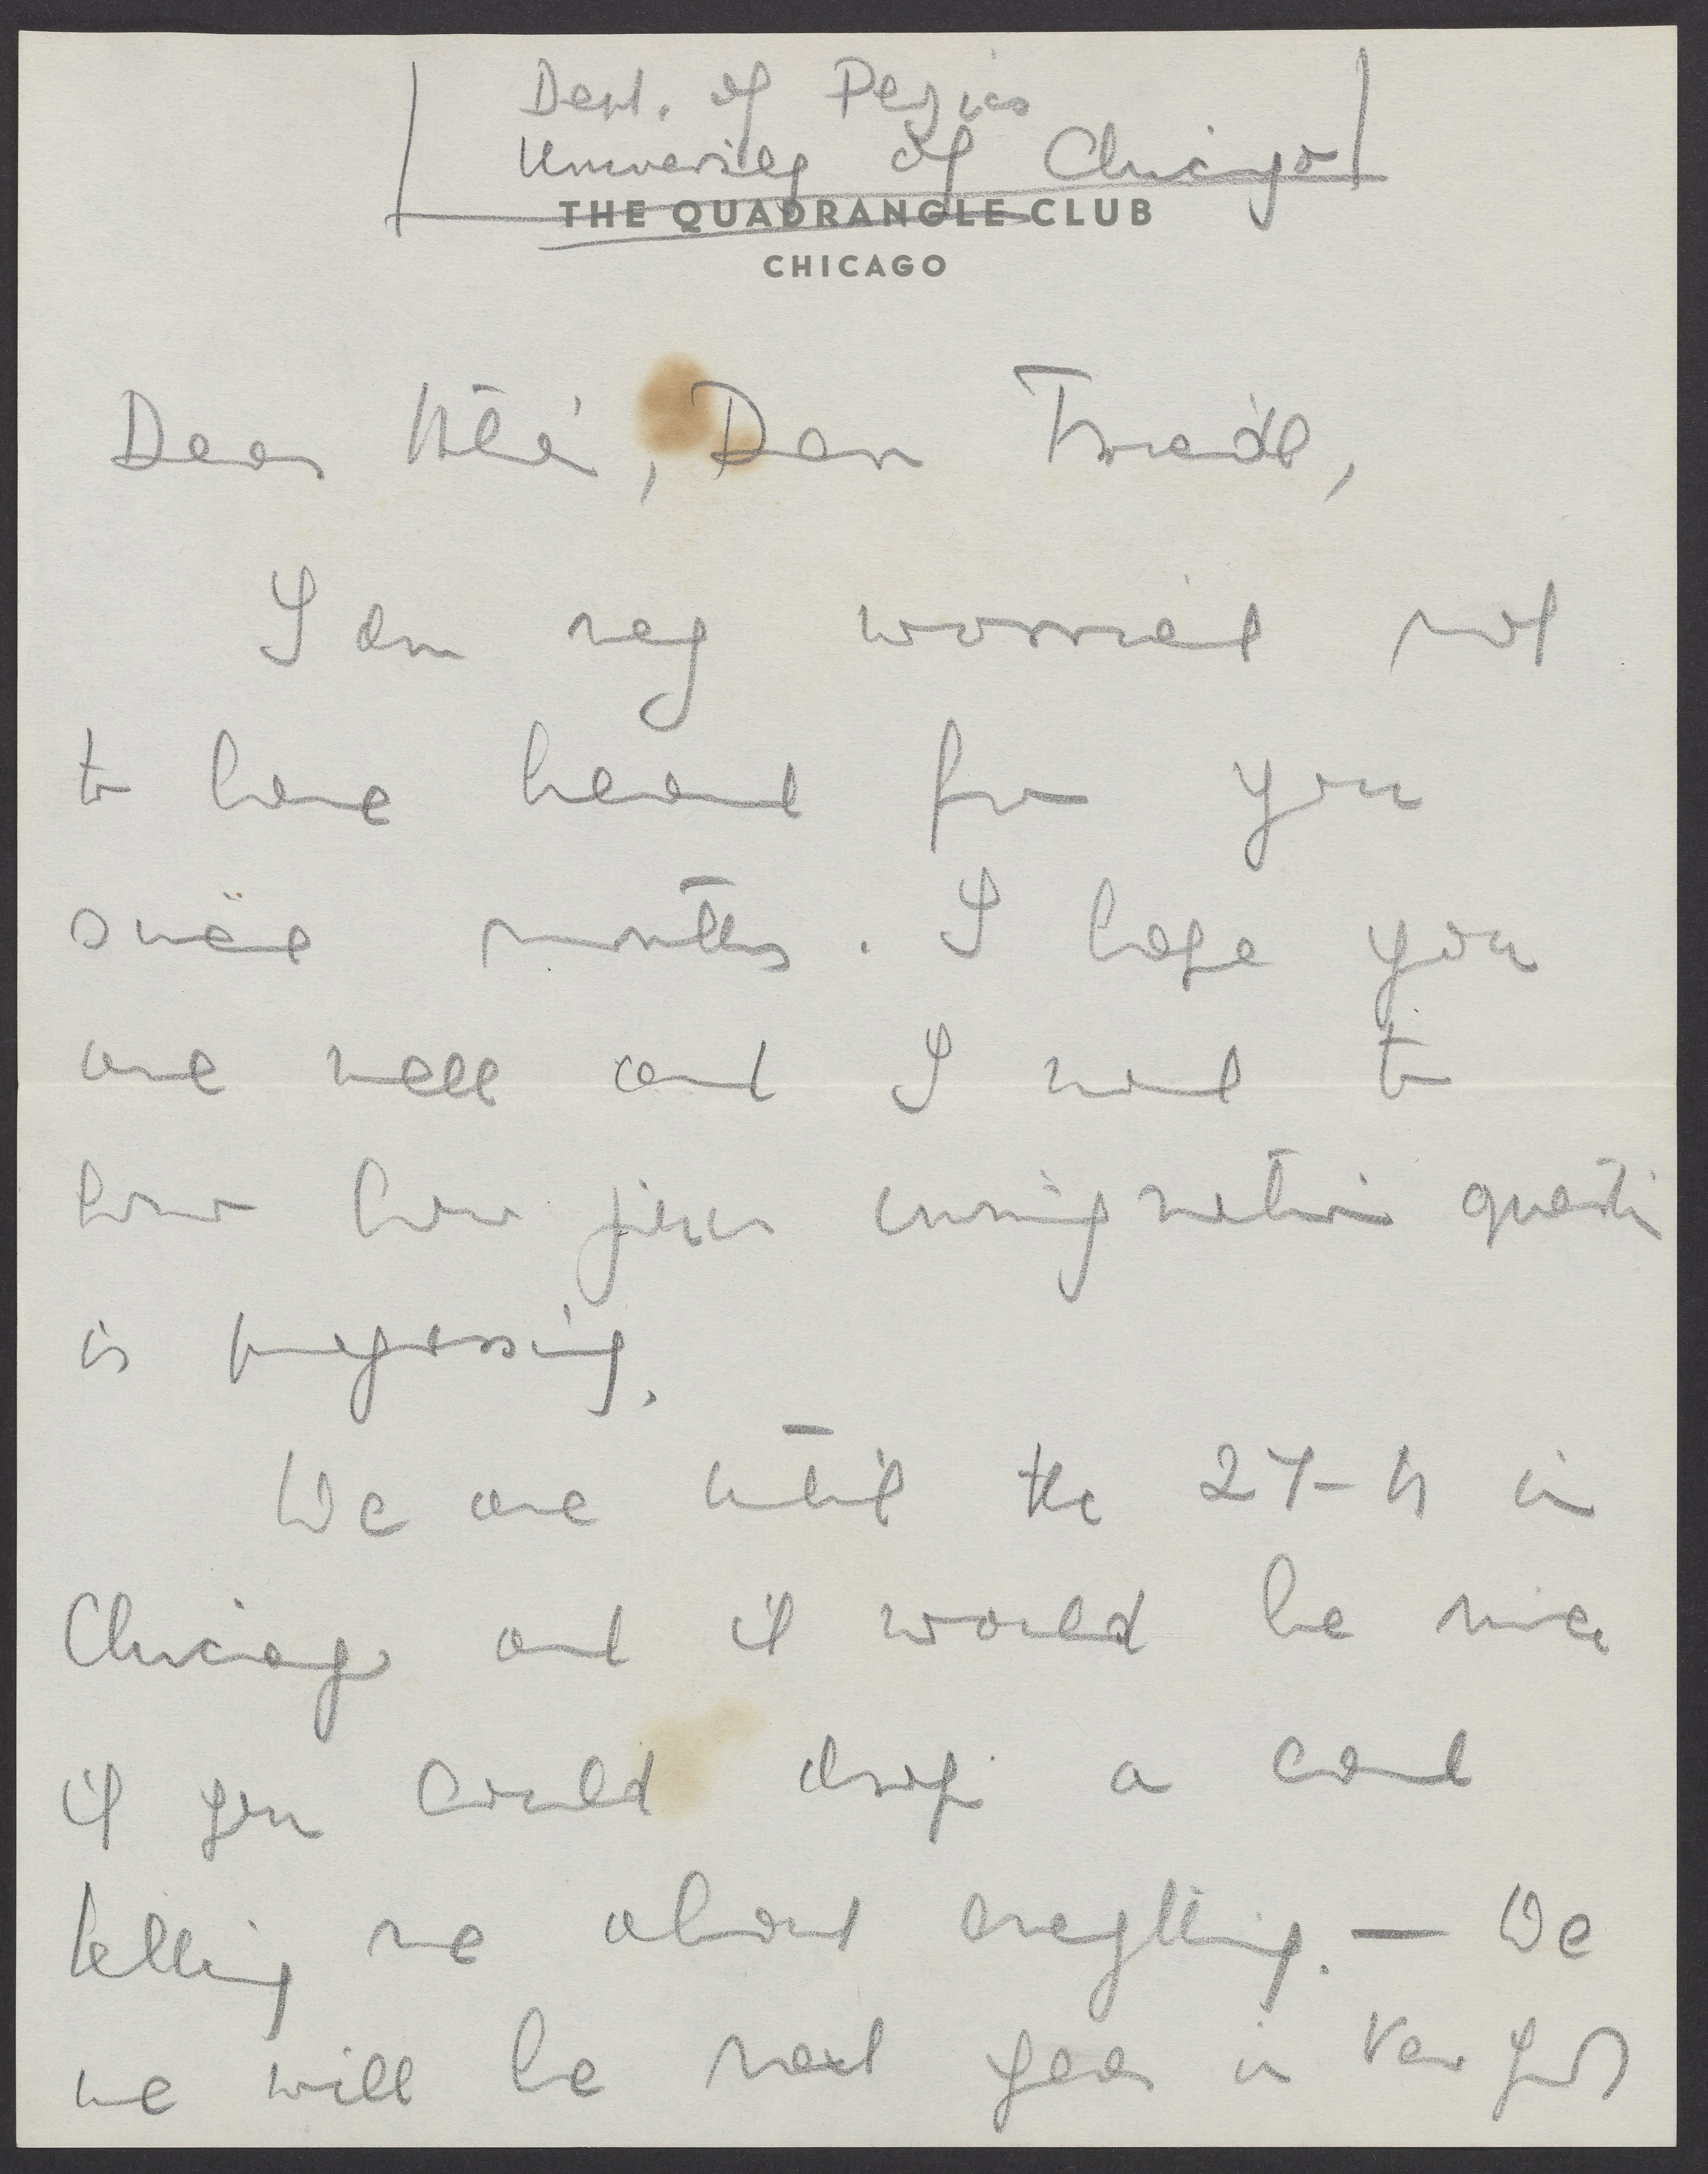 Dept. of Pezics
University of Chicago
THE QUADRANGLE CLUB
CHICAGO
Dear Dear Friedl,
I am very worried not
to have heard from you
since months. I hope you
are well and I want to
know how your immigration questin
is progressing.
We are until the 27-th in
Chicago and it would be nice
if you could drop a card
telling me about everything. — We
we will be next year in New York